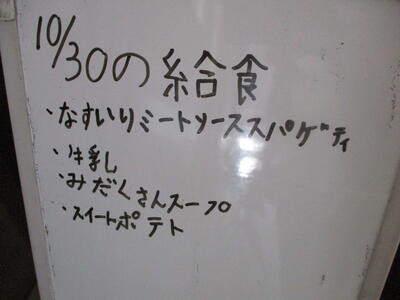 10/30の給食
・なすいりミートソーススパゲティ
・牛乳
・みだくさんスープ
・スイートポテト